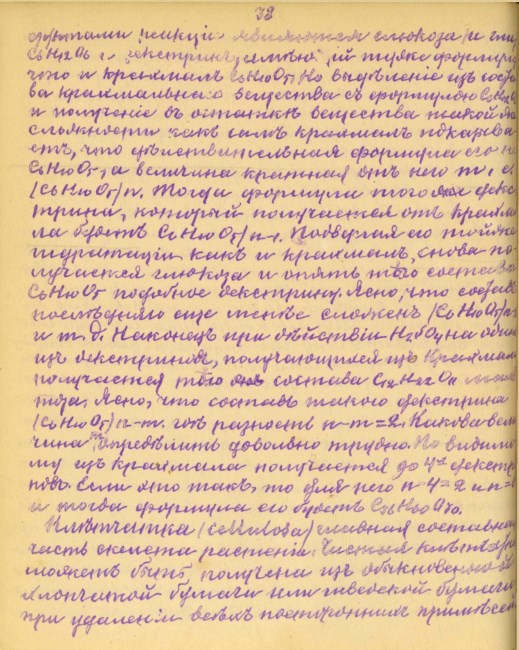 38
дуктами реакціи являются глюкоза и
C6H12O6 и декстринъ, имѣющій туже формулу
что и крахмалъ C6H10O5. Но выдѣленіе изъ соста
ва крахмальнаго вещества съ формулою
и полученіе въ остаткѣ вещества такой же
сложности какъ самъ крахмалъ показыва
етъ, что дѣйствительная формула его не
C6H10O5, а величина кратная отъ него т. е.
(C6H10O5)n. Тогда формула того декс
трина, который получается отъ крахма
ла будетъ (C6H10O5)n-1. Подвергая его той же
гидратаціи какъ и крахмалъ, снова по
лучается глюкоза и опять тѣло состава
C6H10O5 подобное декстрину. Ясно, что составъ
послѣдняго еще менѣе сложенъ (C6H10O5)n-2
и т. д. Наконецъ при дѣйствіи H2SO4 на одинъ
изъ декстриновъ, получающихся изъ крахмала
получается тѣло состава C12H22O11 маль
тоза. Ясно, что составъ такого декстрина
(C6H10O5)n-m. гдѣ разность n-m=2. Какова вели
чина опредѣлить довольно трудно. По видимо
му изъ крахмала получается до 4х декстри
новъ. Если это такъ, то для него n-4=2 и n=6
и тогда формула его будетъ C36H60O30.
Клѣтчатка (Cellulosa) главная составная
часть скелета растеній. Чистая клѣтчатка
можетъ быть получена изъ обыкновенной
хлопчатой бумаги или шведской бумаги
при удаленіи всѣхъ постороннихъ примѣсей